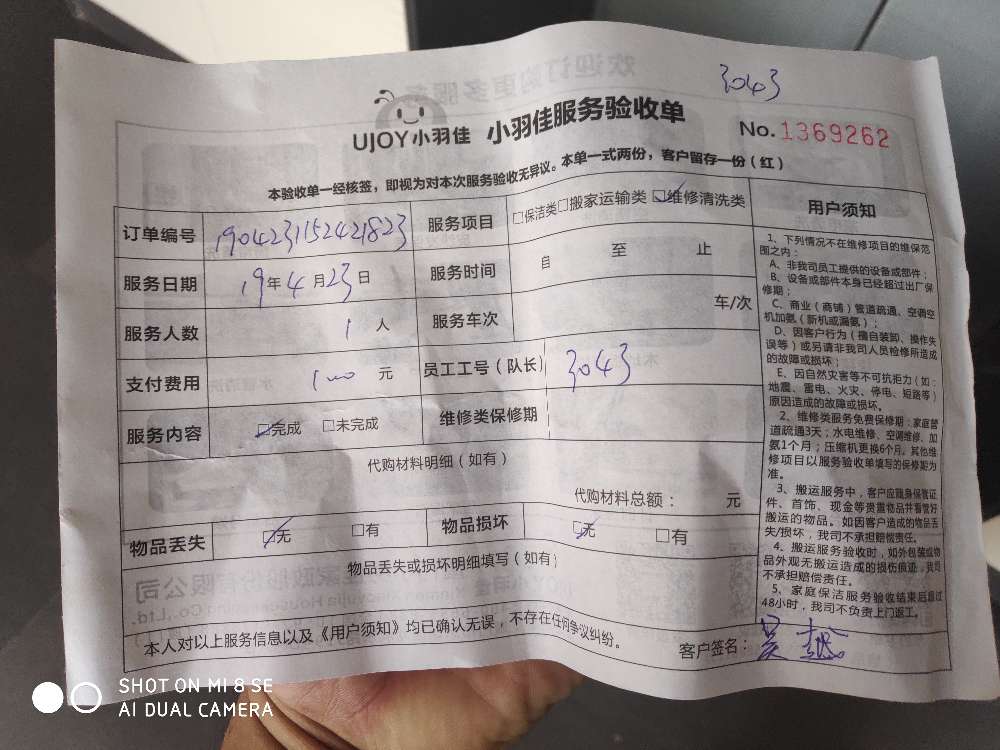 3043
UJOY小羽佳 小羽佳服务验收单
No.1369262
本验收单一经核签，即视为对本次服务验收无异议。本单一式两份，客户留存一份（红）
订单编号 1904231152421823 服务项目 □保洁类□搬家运输类☑维修清洗类
服务日期 19年4月23日 服务时间 自 至 止
服务人数 1人 服务车次 车/次
支付费用 100元 员工工号（队长） 3043
服务内容 ☑完成 □未完成 维修类保修期
代购材料明细（如有）
代购材料总额： 元
物品丢失 ☑无 □有 物品损坏 ☑无 □有
物品丢失或损坏明细填写（如有）
本人对以上服务信息以及《用户须知》均已确认无误，不存在任何争议纠纷。
客户签名：吴越
用户须知
1、下列情况不在维修项目的维保范
围之内：
A、非我司员工提供的设备或部件；
B、设备或部件本身已经超过出厂保
修期；
C、商业（商铺）管道疏通、空调空
机加氨（新机或漏氨）；
D、因客户行为（擅自装卸、操作失
误等）或另请非我司人员检修所造成
的故障或损坏；
E、因自然灾害等不可抗拒力（如：
地震、雷电、火灾、停电、短路等）
原因造成的故障或损坏。
2、维修类服务免费保修期：家庭管
道疏通3天；水电维修、空调维修、加
氨1个月；压缩机更换6个月。其他维
修项目以服务验收单填写的保修期为
准。
3、搬运服务中，客户应随身保管证
件、首饰、现金等贵重物品并看管好
搬运的物品。如因客户造成的物品丢
失/损坏，我司不承担赔偿责任。
4、搬运服务验收时，如外包装或物
品外观无搬运造成的损伤痕迹，我司
不承担赔偿责任。
5、家庭保洁服务验收结束后超过
48小时，我司不负责上门返工。
SHOT ON MI 8 SE
AI DUAL CAMERA